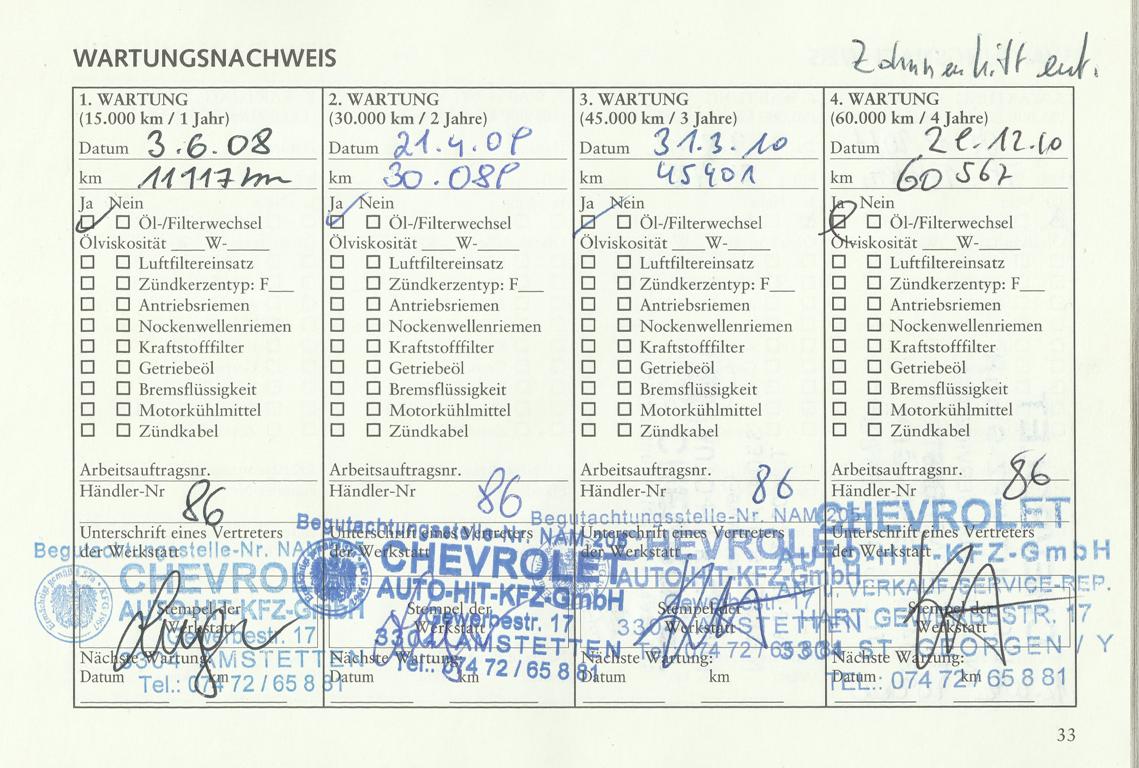 WARTUNGSNACHWEIS
1. WARTUNG
(15.000 km / 1 Jahr)
Datum 3.6.08
km 11117 km
Ja Nein
Öl-/Filterwechsel
Ölviskosität ____W-____
Luftfiltereinsatz
Zündkerzentyp: F__
Antriebsriemen
Nockenwellenriemen
Kraftstofffilter
Getriebeöl
Bremsflüssigkeit
Motorkühlmittel
Zündkabel
Arbeitsauftragsnr.
Händler-Nr 86
Unterschrift eines Vertreters
der Werkstatt
Begutachtungsstelle-Nr. NAM
CHEVROL
AUTO-HIT-KFZ-G
Stempel der
Werkstatt
Gewerbestr. 17
AMSTETTEN
Nächste Wartung:
Datum km
Tel.: 074 72 / 65 8 81
2. WARTUNG
(30.000 km / 2 Jahre)
Datum 21.4.09
km 30.089
Ja Nein
Öl-/Filterwechsel
Ölviskosität ____W-____
Luftfiltereinsatz
Zündkerzentyp: F__
Antriebsriemen
Nockenwellenriemen
Kraftstofffilter
Getriebeöl
Bremsflüssigkeit
Motorkühlmittel
Zündkabel
Arbeitsauftragsnr.
Händler-Nr 86
Begutachtungsstelle-Nr. NAM 205
Unterschrift eines Vertreters
der Werkstatt
CHEVROLET
AUTO-HIT-KFZ-GmbH
Stempel der
Werkstatt
Gewerbestr. 17
3304 AMSTETTEN
Nächste Wartung:
Datum km
Tel.: 074 72 / 65 8 81
3. WARTUNG
(45.000 km / 3 Jahre)
Datum 31.3.10
km 45401
Ja Nein
Öl-/Filterwechsel
Ölviskosität ____W-____
Luftfiltereinsatz
Zündkerzentyp: F__
Antriebsriemen
Nockenwellenriemen
Kraftstofffilter
Getriebeöl
Bremsflüssigkeit
Motorkühlmittel
Zündkabel
Arbeitsauftragsnr.
Händler-Nr 86
Begutachtungsstelle-Nr. NAM 205
Unterschrift eines Vertreters
der Werkstatt
CHEVROLE
AUTO-HIT-KFZ-GmbH
Stempel der
Werkstatt
Gewerbestr. 17
330 AMSTETTEN
Nächste Wartung:
Datum km
Tel.: 074 72 / 65 8 81
4. WARTUNG
(60.000 km / 4 Jahre)
Datum .12.10
km 60 567
Ja Nein
Öl-/Filterwechsel
Ölviskosität ____W-____
Luftfiltereinsatz
Zündkerzentyp: F__
Antriebsriemen
Nockenwellenriemen
Kraftstofffilter
Getriebeöl
Bremsflüssigkeit
Motorkühlmittel
Zündkabel
Arbeitsauftragsnr.
Händler-Nr 86
CHEVROLET
Unterschrift eines Vertreters
der Werkstatt
AUTO-HIT-KFZ-GmbH
VERKAUF-SERVICE-REP.
Stempel der
Werkstatt
HART GEWERBESTR. 17
3304 ST. GEORGEN / Y
Nächste Wartung:
Datum km
TEL.: 074 72 / 65 8 81
33